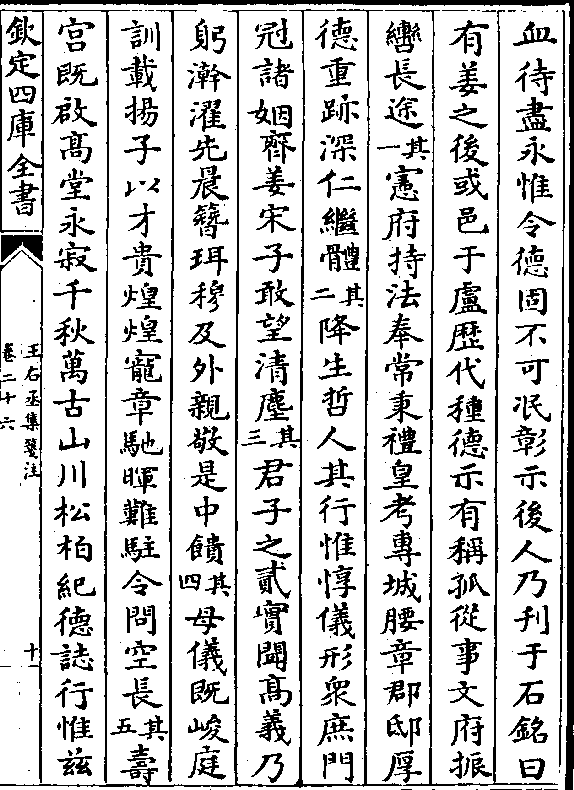 血待盡永惟令德固不可泯彰示後人乃刋于石銘曰
有姜之後或邑于盧歴代種德示有稱孤從事文府振
轡長途其一憲府持法奉常秉禮皇考專城腰章郡邸厚
德重跡深仁繼體其二降生哲人其行惟惇儀形衆庶門
冠諸姻齊姜宋子敢望清塵其三君子之貳實聞髙義乃
躬澣濯先晨簪珥穆及外親敬是中饋其四母儀既峻庭
訓載揚子以才貴煌煌寵章馳暉難駐令問空長其五壽
宫既啟髙堂永寂千秋萬古山川松柏紀德誌行惟兹
欽定四庫全書
王右丞集箋注
卷二十六
十一